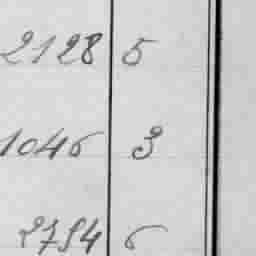 2128 5
1046 3
2794 6